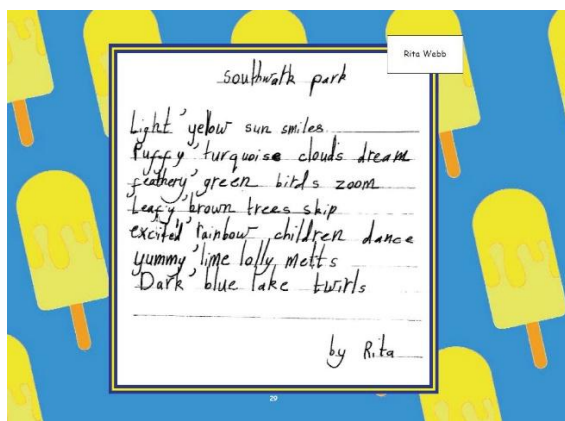 Rita Webb
southwatk park
Light, yelow sun smiles
Puffy, turquoise clouds dream
feathery, green birds zoom
Leafy, brown trees skip
excited, rainbow children dance
yummy, lime lolly melts
Dark, blue lake twirls
by Rita
29